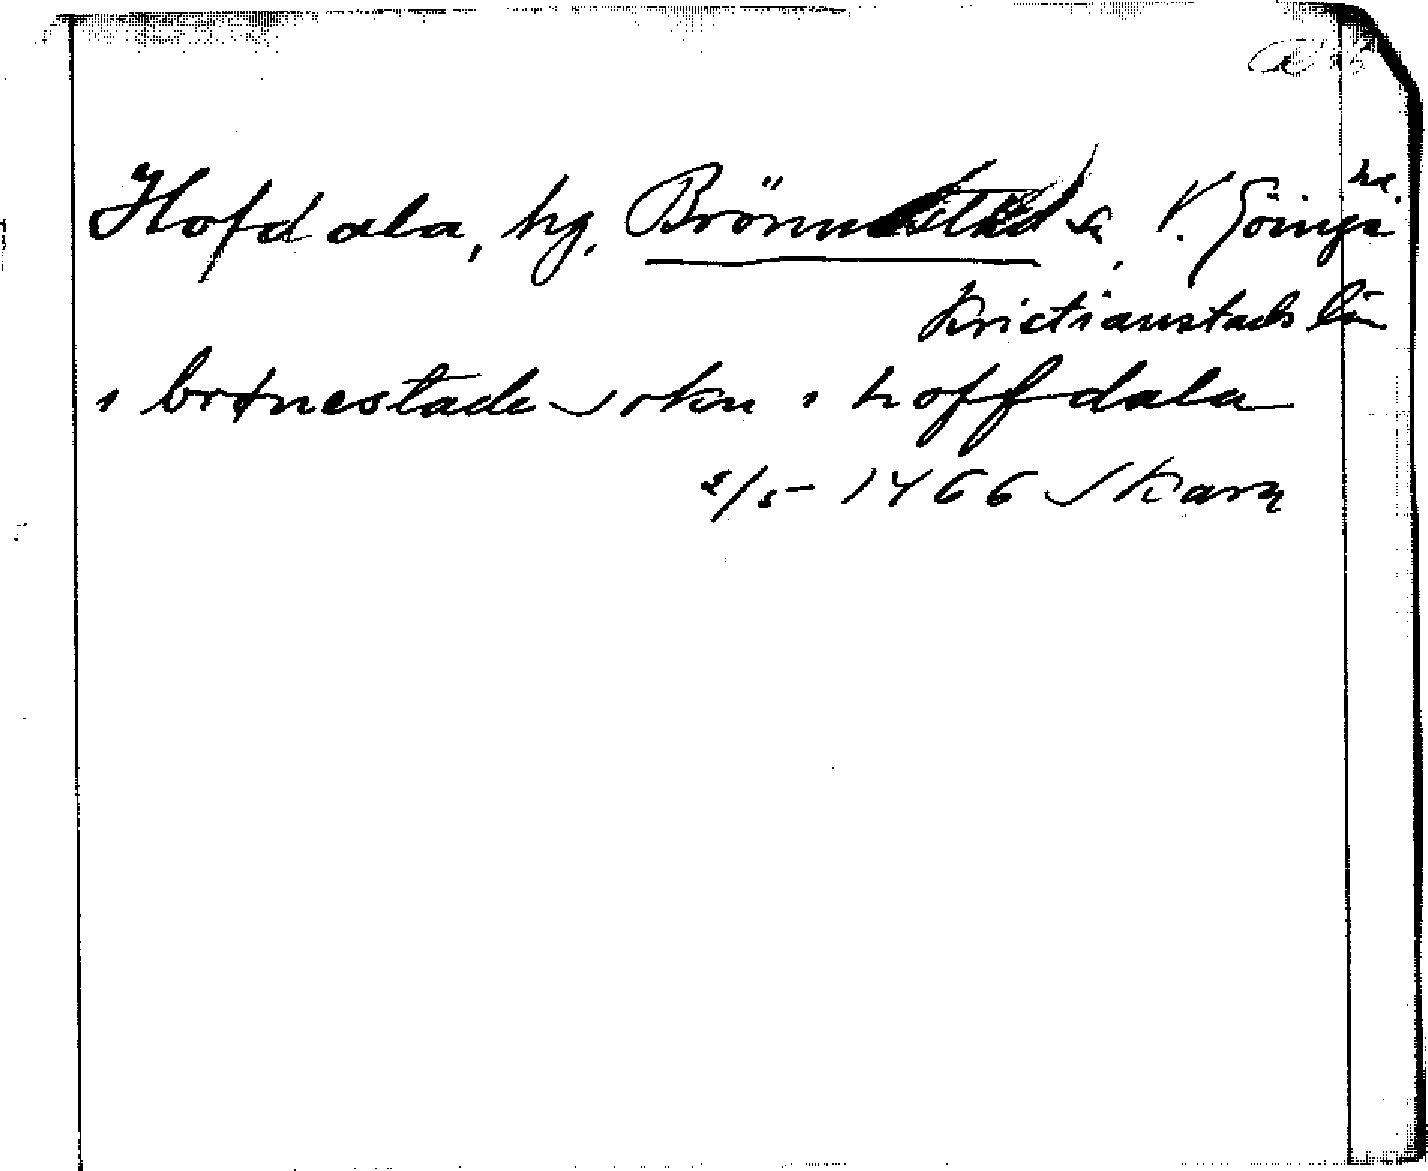 Hofdala, hg, Brönnestad sn, V. Göinge hd.
Kristianstads län
i brønestade sokn i hoffdala
2/5 1466 Skarh